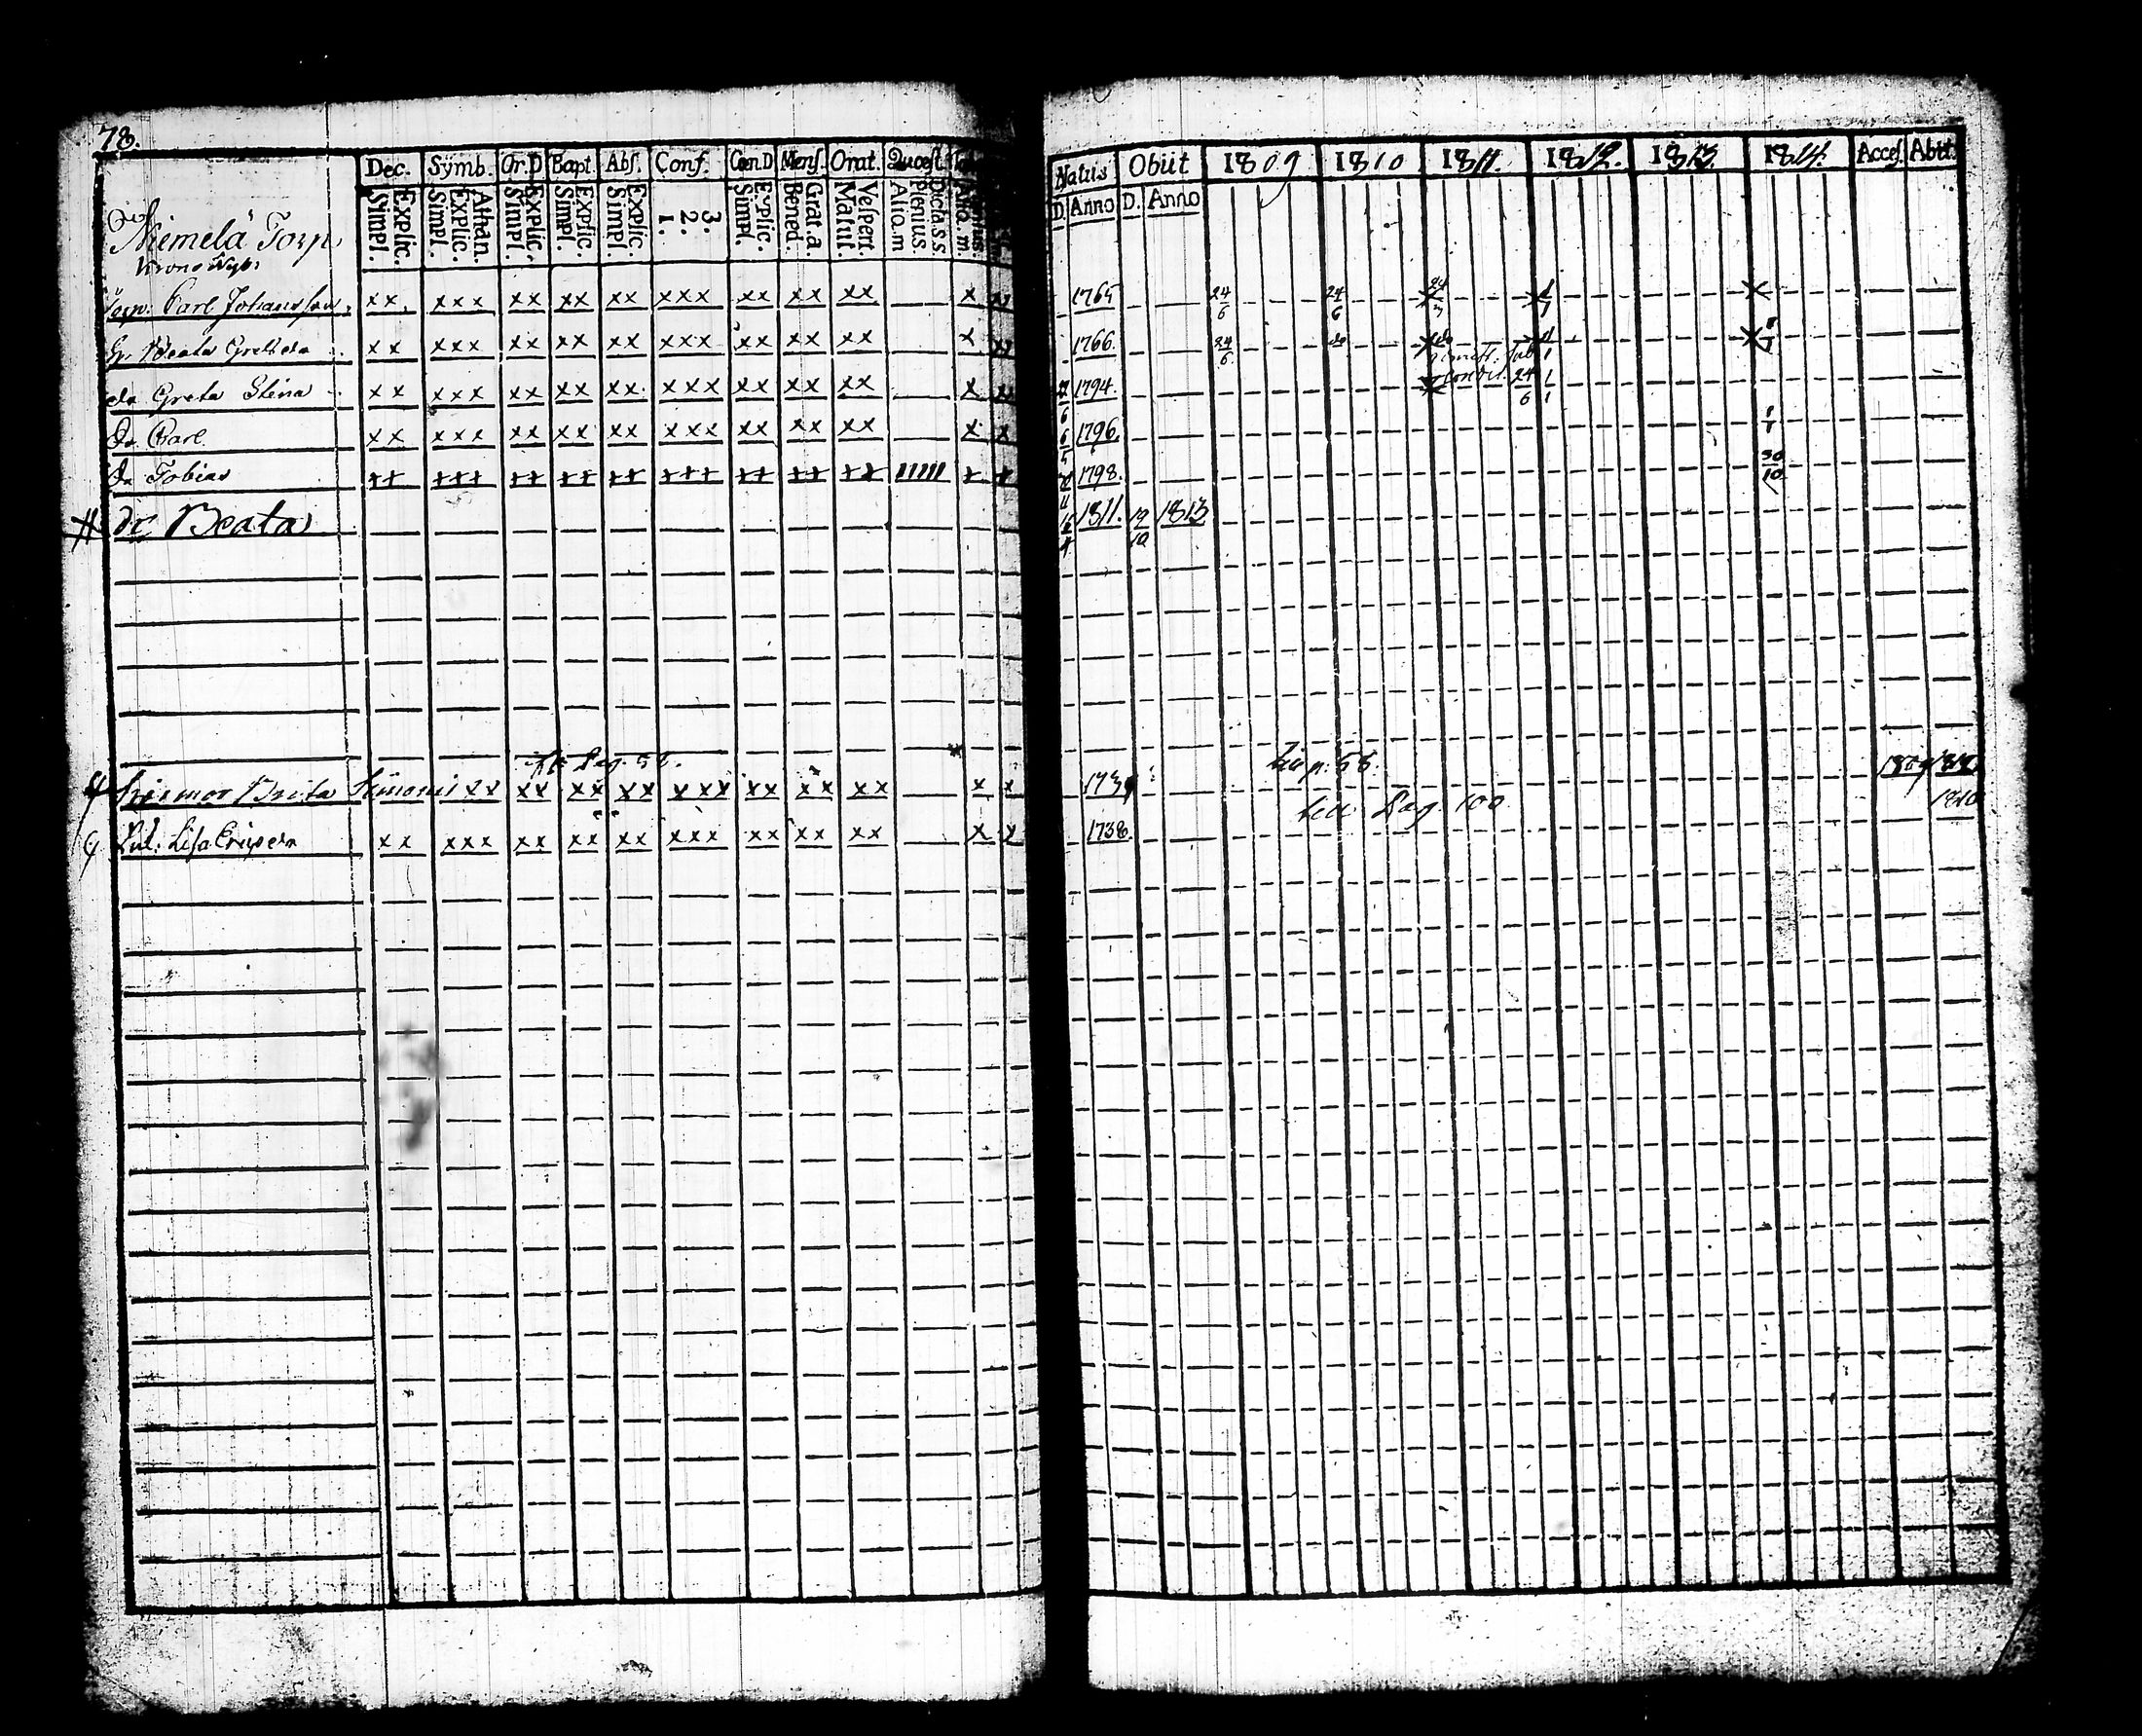 78.
Dec. Symb. Or.D Bapt. Abs. Conf. Cœn.D Mens. Orat. Quœst.
Natus Obiit 1809 1810 1811. 1812. 1813. 1814. Acces. Abit.
Explic. Simpl. Athan. Explic. Simpl. Explic. Simpl. Explic. Simpl. Explic. Simpl. 3. 2. 1. Explic. Simpl. Grat.a. Bened. Vespert. Matut. Dicta.s.s. Plenius. Aliq.m Aliq.m.
D. Anno D. Anno
Niemelä Torp
Krono Nyb:
Torp. Carl Johansson xx xxx xx xx xx xxx xx xx xx x xx 1765 24/6 24/6 24/3
H. Beata Gretsdr xx xxx xx xx xx xxx xx xx xx x xx 1766. 24/6 do do
dr Greta Stina xx xxx xx xx xx xxx xx xx xx x xx 1794. 24/6 1/1
So. Carl xx xxx xx xx xx xxx xx xx xx x x 6/5 1796.
So. Tobias xx xxx xx xx xx xxx xx xx xx x x 1798. 30/10
dr Beata 1811. 19/10 1813
Pag. 58.
Brita Simonis xx xx xx xx xxx xx xx xx x x p. 58. 1809
Lisa Ericsdr xx xxx xx xx xx xxx xx xx xx x x 1738. Pag 100 1810